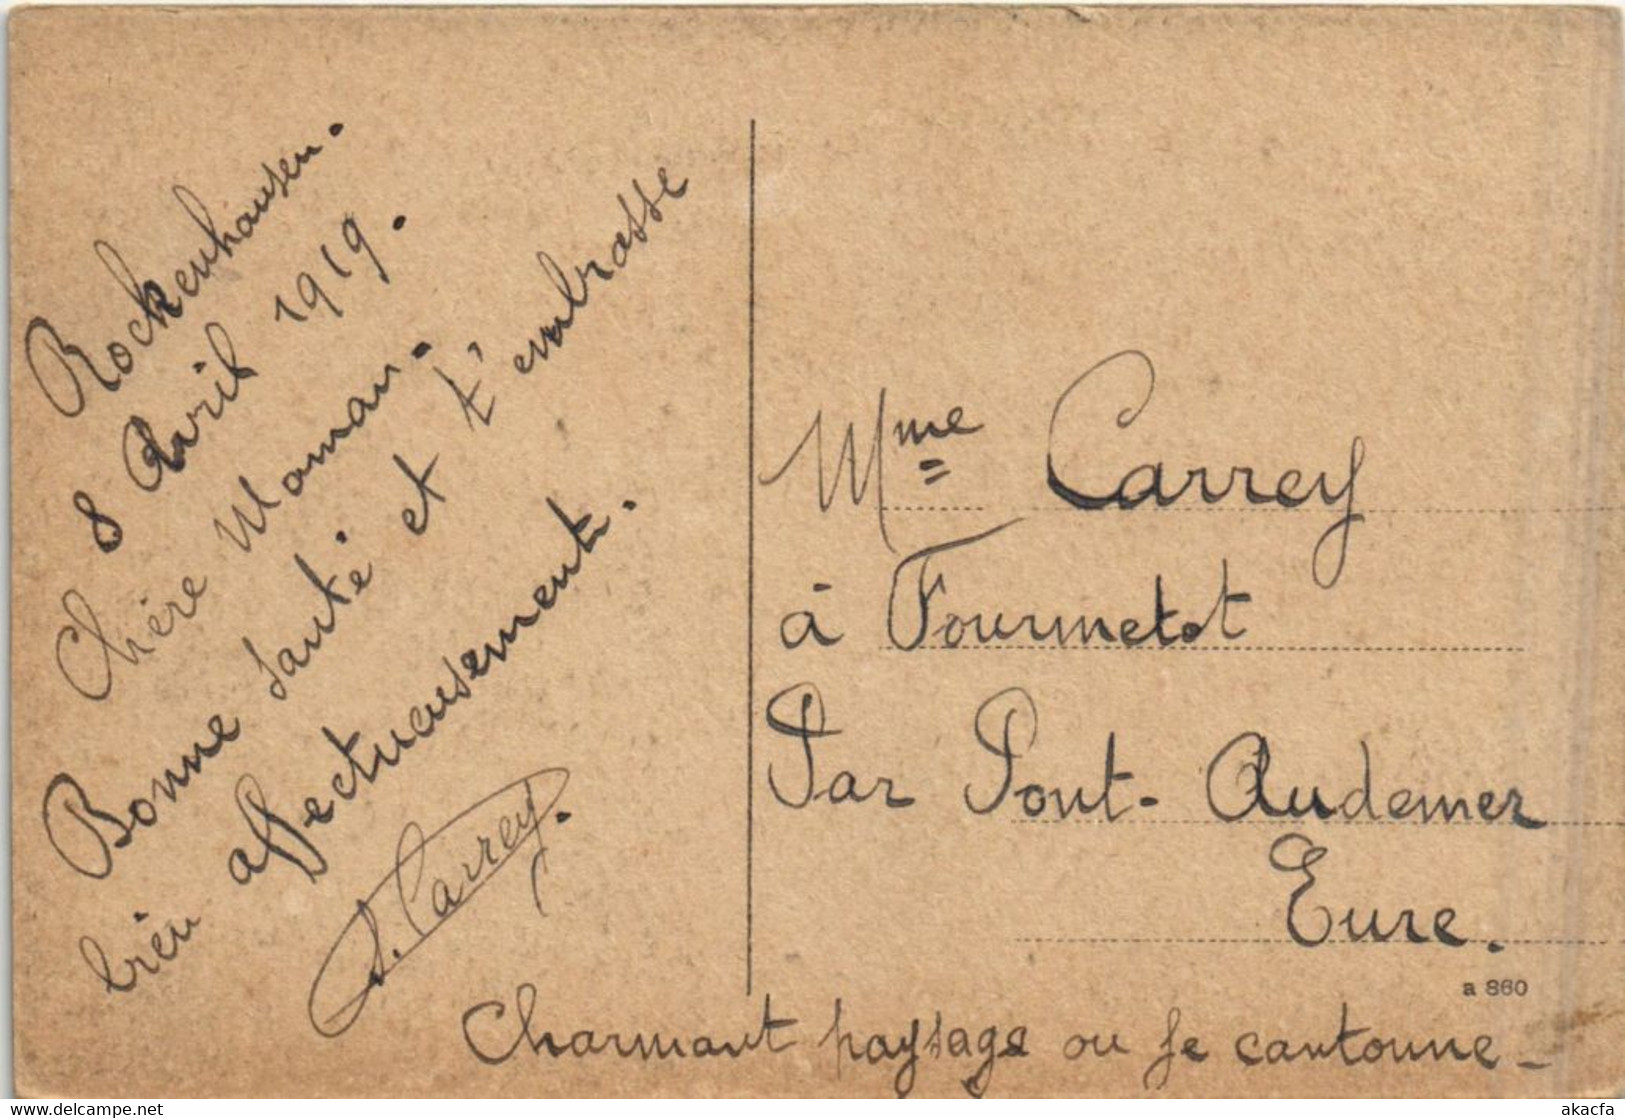 Rockenhausen.
8 Avril 1919.
Chère Maman.
Bonne santé et t'embrasse
bien affectueusement.
Carrey.
Mme Carrey
à Fourmetot
Par Pont-Audemer
Eure.
a 860
Charmant paysage ou je cantonne_
akacfa